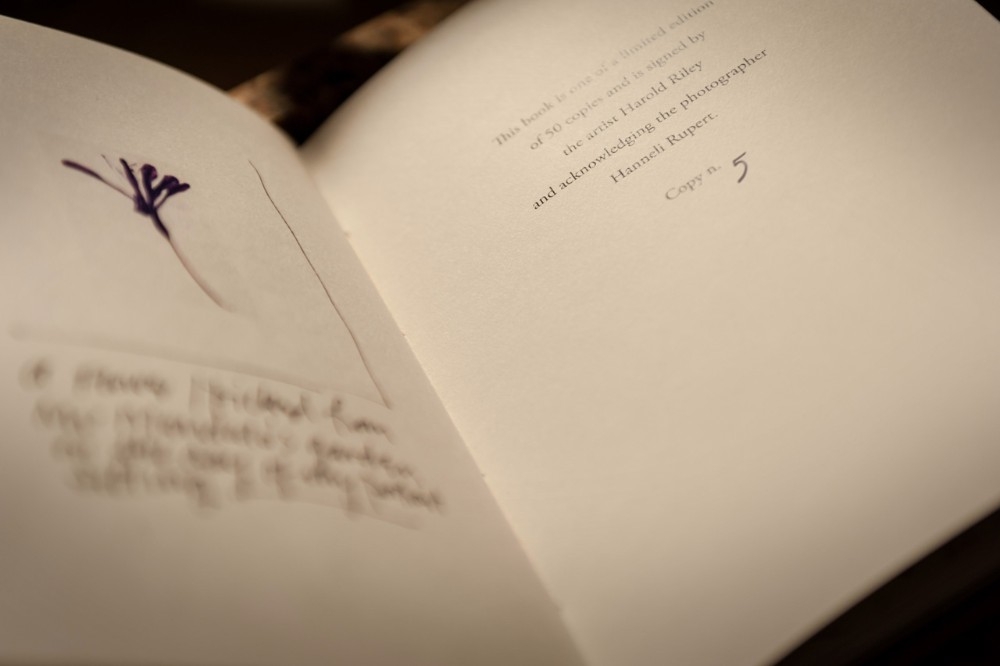 A flower I picked from
Mandela's garden
the day of
sitting
This book is one of a limited edition
of 50 copies and is signed by
the artist Harold Riley
and acknowledging the photographer
Hanneli Rupert.
Copy n. 5